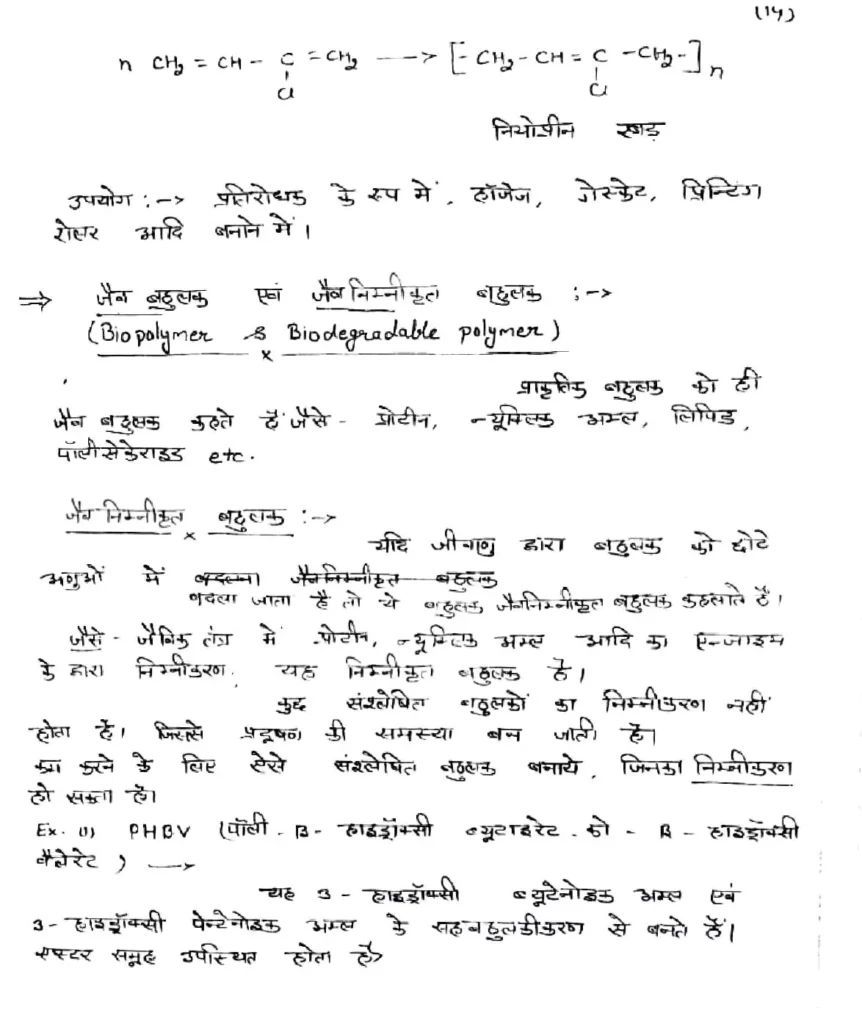 (14)
n CH2 = CH - C = CH2 --> [- CH2 - CH = C - CH2 -]n
Cl Cl
नियोप्रीन रबाड़
उपयोग :-> प्रतिरोधक के रूप में, हॉजेज, गेस्केट, प्रिन्टिंग
रोलर आदि बनाने में।
⇒ जैव बहुलक एवं जैव निम्नीकृत बहुलक :->
(Biopolymer & Biodegradable polymer)
x
प्राकृतिक बहुलक को ही
जैव बहुलक कहते हैं जैसे - प्रोटीन, न्यूक्लिक अम्ल, लिपिड,
पॉलीसेकेराइड etc.
जैव निम्नीकृत बहुलक :->
x
यदि जीवाणु द्वारा बहुलक को छोटे
अणुओं में बदलना जैवनिम्नीकृत बहुलक
बदला जाता है तो ये बहुलक जैवनिम्नीकृत बहुलक कहलाते हैं।
जैसे - जैविक तंत्र में प्रोटीन, न्यूक्लिक अम्ल आदि का एन्जाइम
के द्वारा निम्नीकरण. यह निम्नीकृत बहुलक है।
कुछ संश्लेषित बहुलकों का निम्नीकरण नहीं
होता है। जिससे प्रदूषण की समस्या बन जाती है।
कम करने के लिए ऐसे संश्लेषित बहुलक बनाये, जिनका निम्नीकरण
हो सकता है।
Ex. (1) PHBV (पॉली - β - हाइड्रॉक्सी ब्यूटाइरेट - को - β - हाइड्रॉक्सी
वैलेरेट) -->
यह 3 - हाइड्रॉक्सी ब्यूटेनोइक अम्ल एवं
3 - हाइड्रॉक्सी पेन्टेनोइक अम्ल के सहबहुलकीकरण से बनते हैं।
एस्टर समूह उपस्थित होता है>